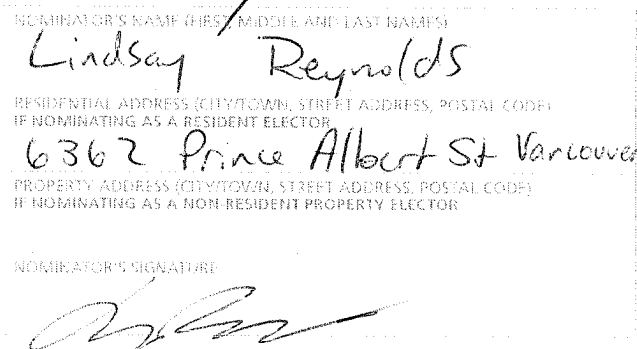 NOMINATOR'S NAME (FIRST, MIDDLE AND LAST NAMES)
Lindsay Reynolds
RESIDENTIAL ADDRESS (CITY/TOWN, STREET ADDRESS, POSTAL CODE)
IF NOMINATING AS A RESIDENT ELECTOR
6362 Prince Albert St Vancouver
PROPERTY ADDRESS (CITY/TOWN, STREET ADDRESS, POSTAL CODE)
IF NOMINATING AS A NON-RESIDENT PROPERTY ELECTOR
NOMINATOR'S SIGNATURE